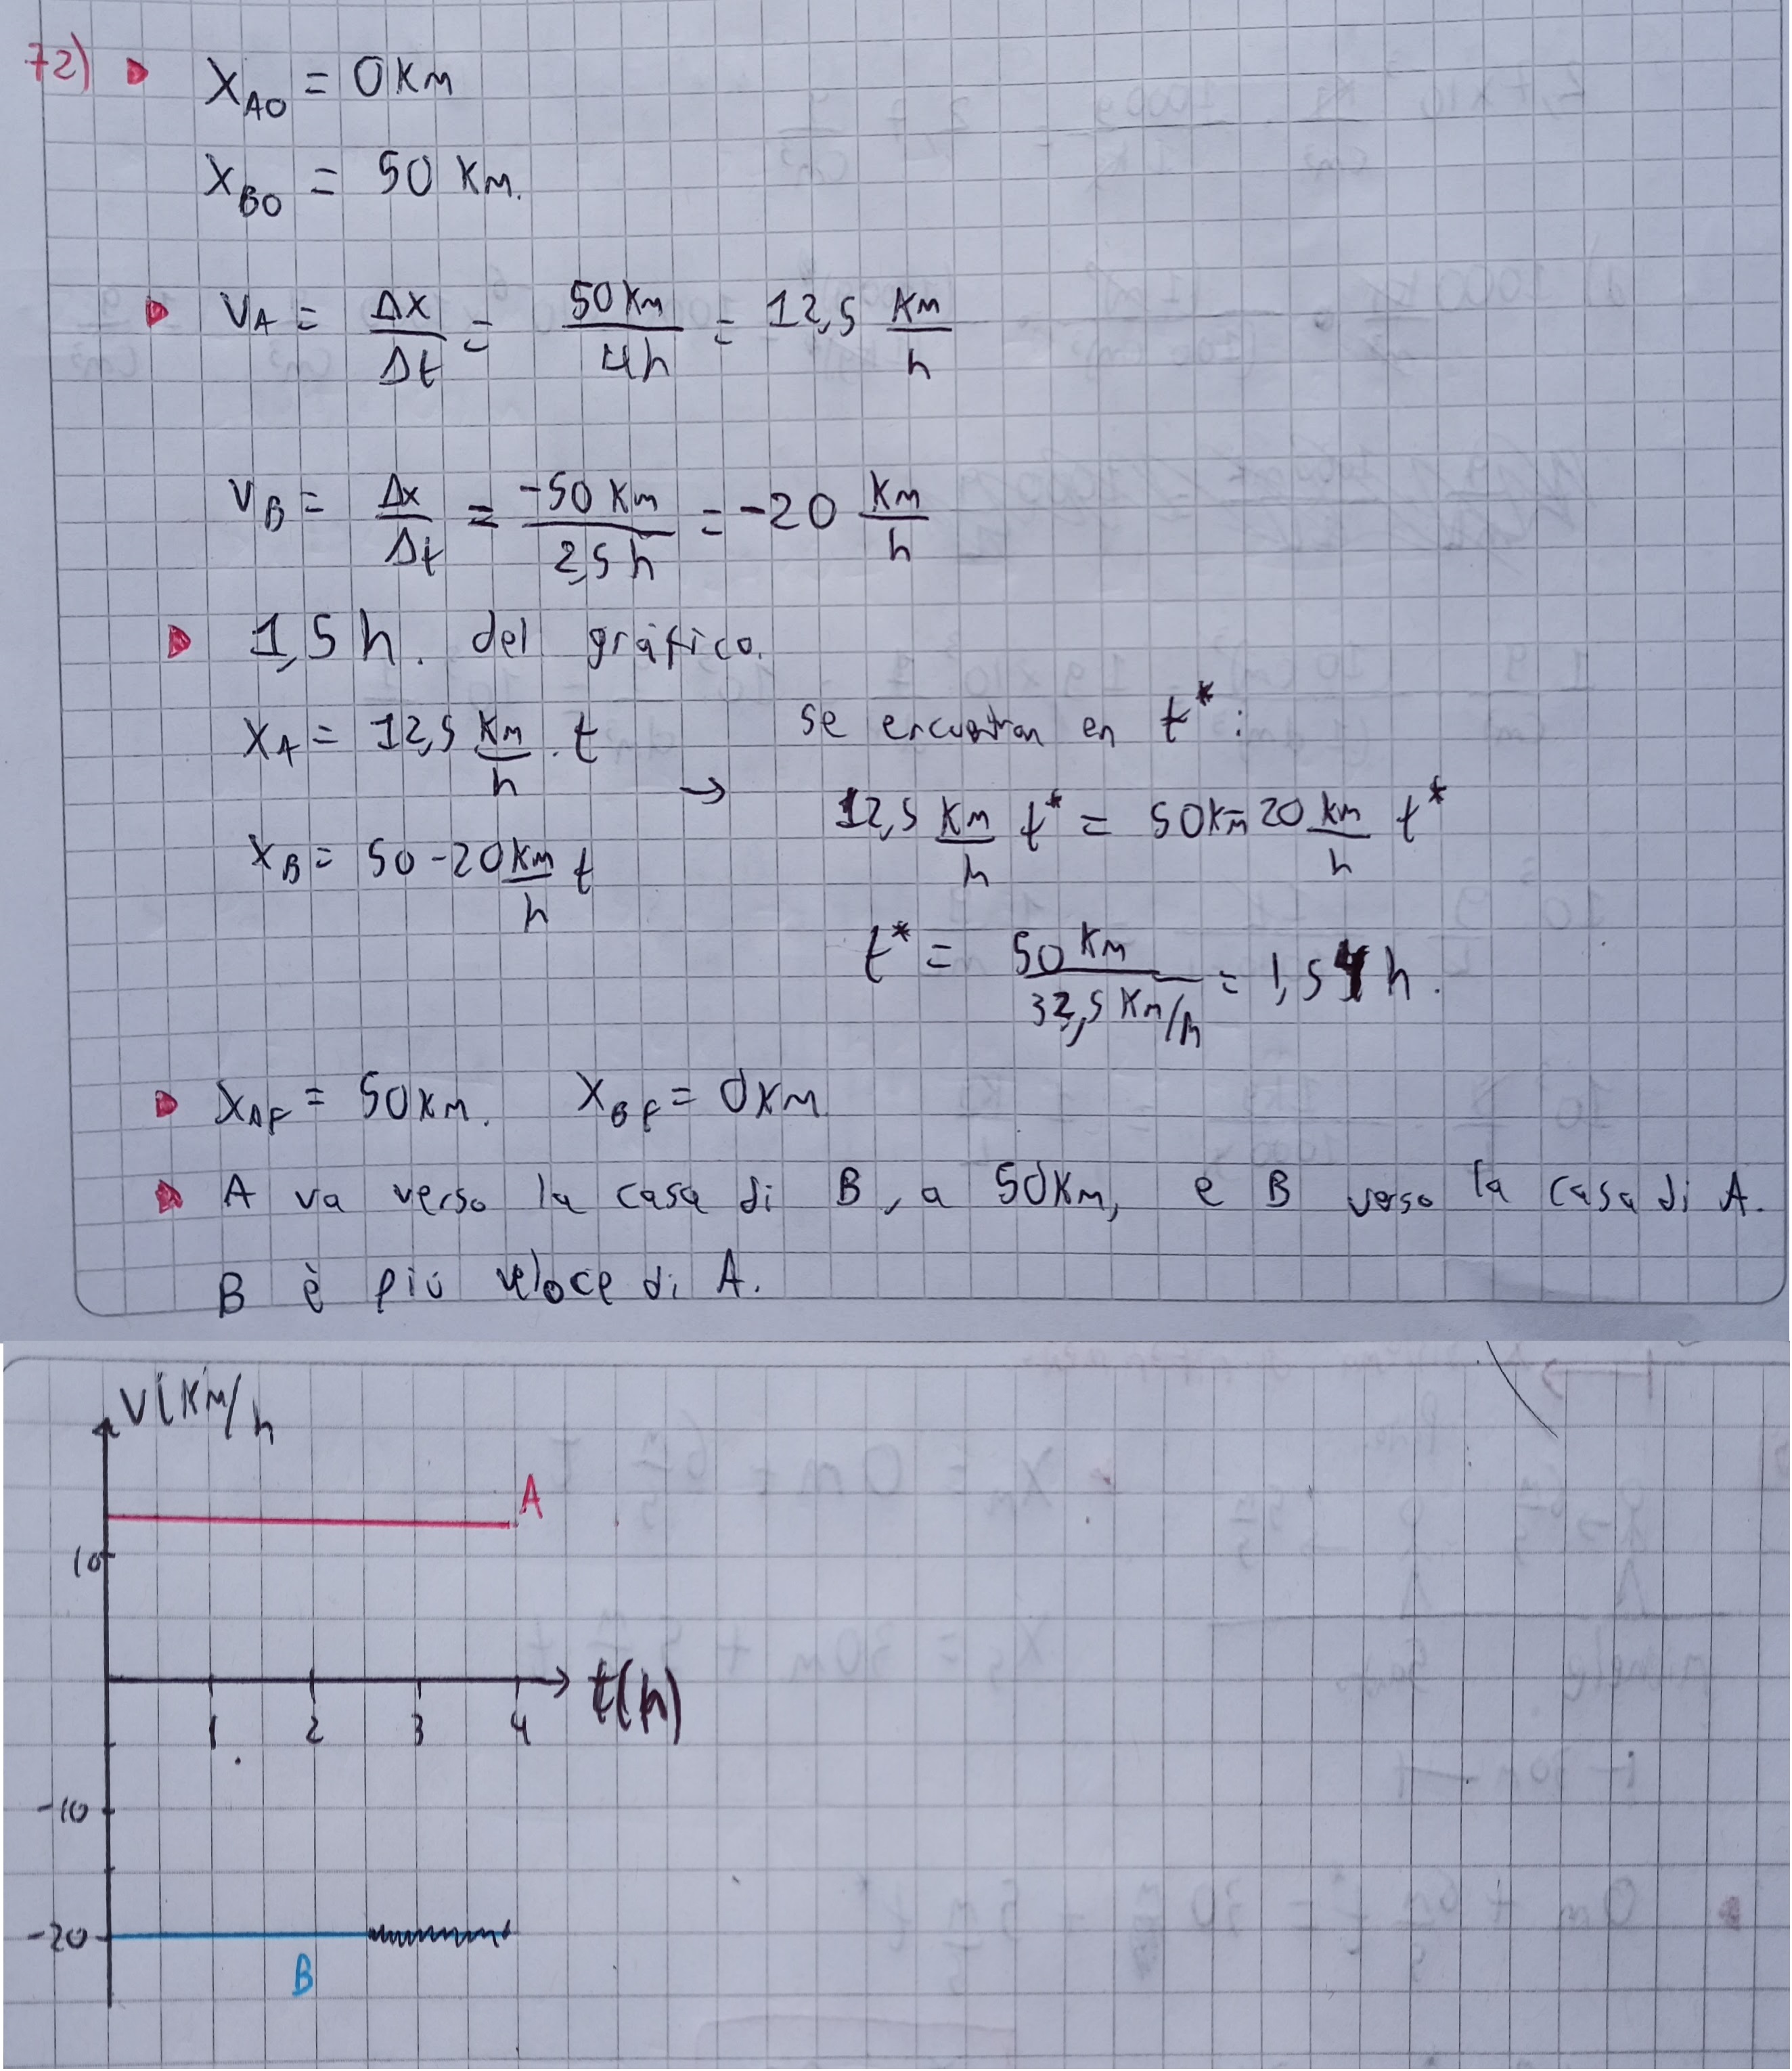 72) X_A0 = 0 Km
X_B0 = 50 Km.
V_A = Δx/Δt = 50 Km/4h = 12,5 Km/h
V_B = Δx/Δt = -50 Km/2,5 h = -20 Km/h
1,5 h. del gráfico.
X_A = 12,5 Km/h . t → se encuentran en t*:
X_B = 50 - 20 Km/h t
12,5 Km/h t* = 50 Km - 20 Km/h t*
t* = 50 Km/32,5 Km/h = 1,54 h.
X_AF = 50 Km. X_BF = 0 Km
A va verso la casa di B, a 50 Km, e B verso la casa di A.
B è più veloce di A.
V(Km/h
A
10
t(h)
1 2 3 4
-10
-20
B